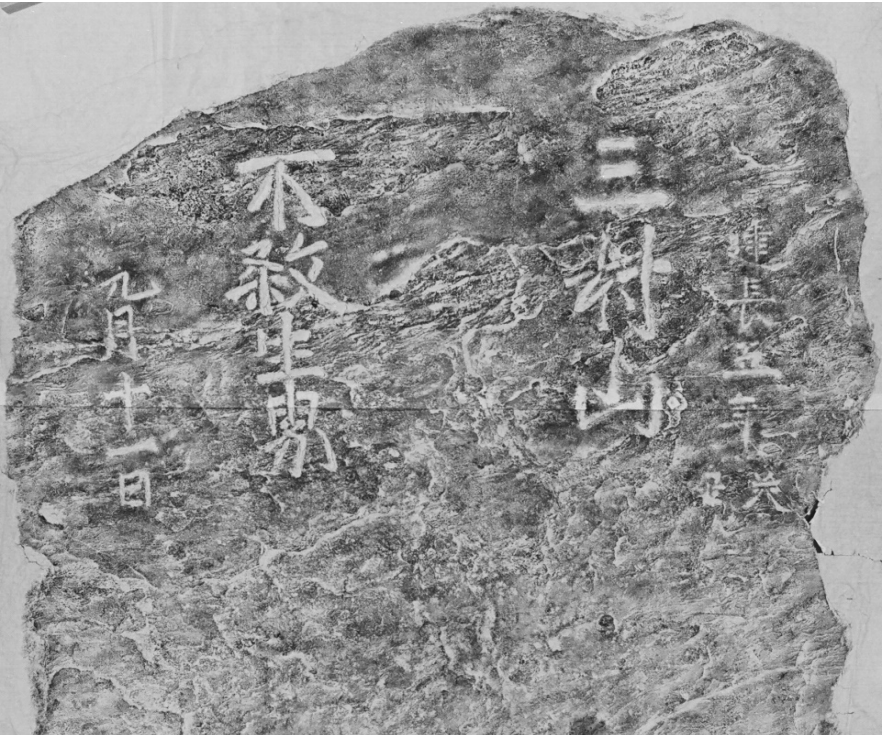 建長五年癸丑
三村山
不殺生界
九月十一日